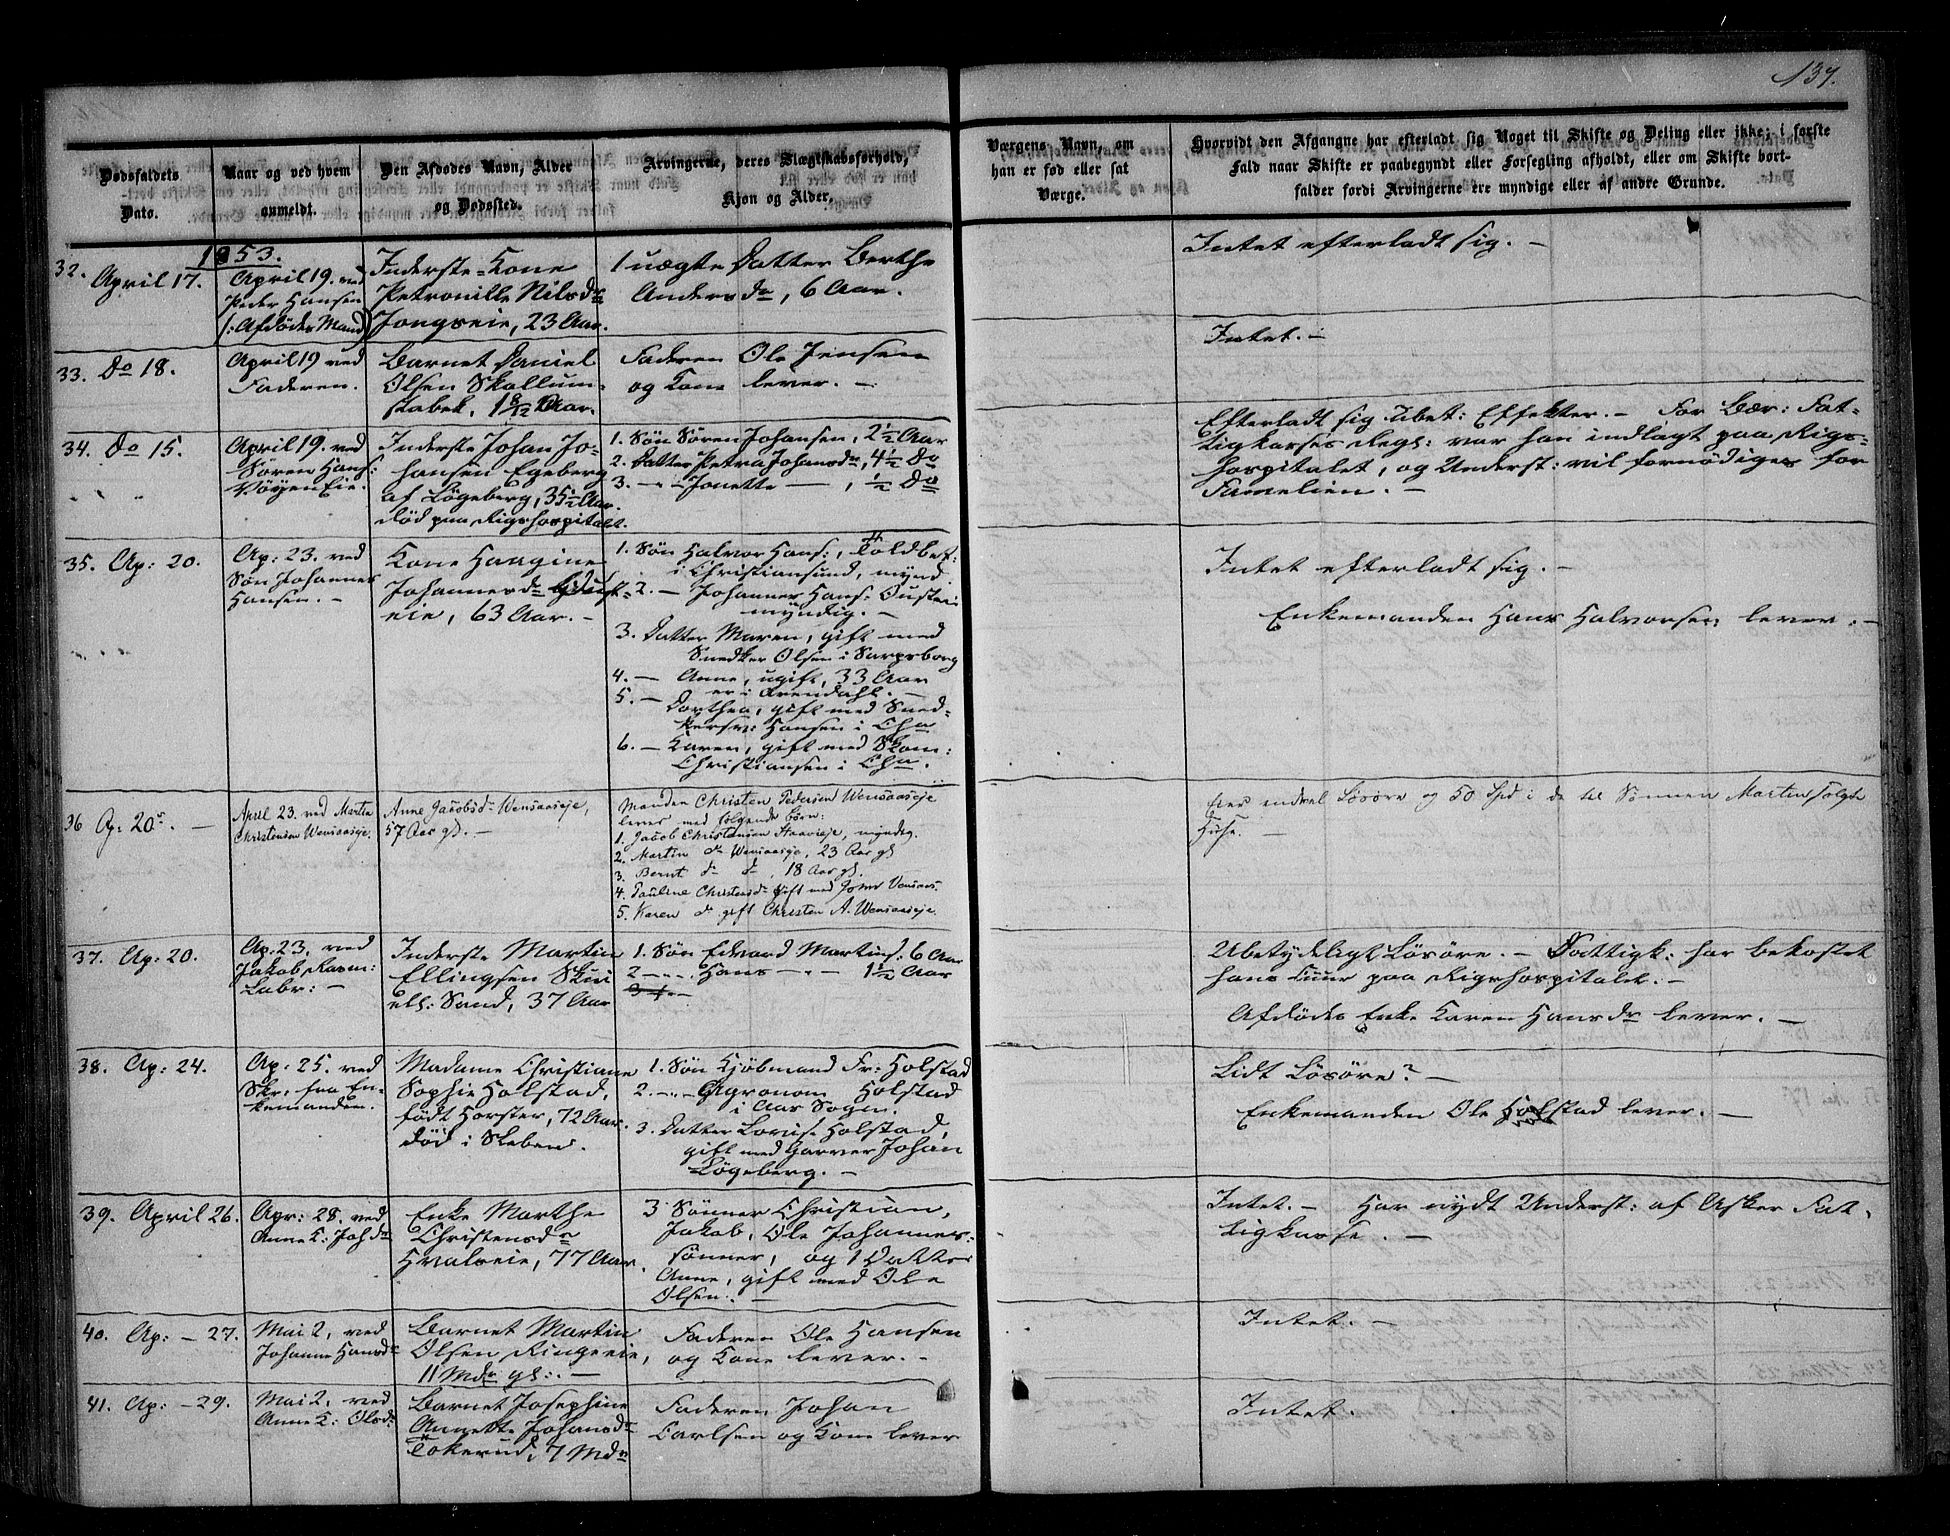 137.
Dødsfaldets
Dato.
Naar og ved hvem
anmeldt.
Den Afdødes Navn, Alder
og Dødssted.
Arvingerne, deres Slægtskabsforhold,
Kjøn og Alder.
Værgens Navn, om
han er født eller sat
Værge.
Hvorvidt den Afgangne har efterladt sig Noget til Skifte og Deling eller ikke; i første
Fald naar Skifte er paabegyndt eller Forsegling afholdt, eller om Skifte bort-
falder fordi Arvingerne ere myndige eller af andre Grunde.
1853.
32. April 17.
April 19. ved
Peder Hansen
/: Afdødes Mand)
Inderste-Kone
Petronille Nilsdr
Jongseie, 23 Aar.
1 uægte Datter Berthe
Andersdr, 6 Aar.
Intet efterladt sig. –
33. Do 18.
April 19 ved
Faderen.
Barnet Daniel
Olsen Skollum-
stabek. 1 8/12 Aar.
Faderen Ole Jensen
og Kone lever. –
Intet. –
34. Do 15.
April 19. ved
Søren Hans:
Vøyen Eie.
Inderste Johan Jo-
hansen Egeberg
af Løgeberg, 35½ Aar.
død paa Rigshospitalt.
1. Søn Søren Johansen, 2½ Aar
2. Datter Petra Johansdr, 4½ Do
3. – – Jonette – , ½ Do
Efterladt sig Ubet: Effekter. – For Bær: Fat-
tigkasses Regl: var han indlagt paa Rigs-
hospitalet, og Underst: vil fornødiges for
Familien. –
35. Ap: 20.
Ap: 23. ved
Søn Johannes
Hansen. –
Kone Haagine
Johannesdr
eie, 63 Aar. –
1. Søn Halvor Hans:, Toldbet:
i Christiansund, mynd.
2. – Johannes Hans:
myndig. –
3. Datter Maren, gift med
Snedker Olsen i Sarpsborg
4. – Anne, ugift, 33 Aar
er i Arendahl. –
5. – Dorthea, gift med Sned-
kersv: Hansen i Cha
6. – Karen, gift med Skom:
Christiansen i Cha.
Intet efterladt sig. –
Enkemanden Hans Halvorsen lever. –
36 Ap: 20. –
April 23. ved Martin
Christensen Wensaaseje.
Anne Jacobsdr Wensaaseje,
57 Aar gl. –
Manden Christen Pedersen Wensaaseje
lever med følgende Børn:
1. Jacob Christensen Haavieje, myndig.
2. Martin do Wensaaseje, 23 Aar gl
3. Bernt do do, 18 Aar gl.
4. Pauline Christensdr gift med Wensaas.
5. Karen do gift Christen A. Wensaaseje.
Løsøre og 50 Spd i de til Sønnen Martin solgte
Huse. –
37. Ap: 20.
Ap. 23. ved
Jakob Rasm:
Labr: –
Inderste Martin
Ellingsen Skui
ell: Sand, 37 Aar
1. Søn Edvard Martins: 6 Aar
2 – „ Hans – „ –
Ubetydeligt Løsøre. – Fattigk: har bekostet
hans Cuur paa Rigshospitalet. –
Afdødes Enke Karen Hansdr lever. –
38. Ap: 24.
Ap: 25. ved
Skr. fra En-
kemanden.
Madame Christiane
Sophie Holstad,
født Horster, 72 Aar.
død i Sleben.
1. Søn Kjøbmand Fr: Holstad
2. – „ – Agronom Holstad
i Aas Sogn.
3. Datter Lovise Holstad,
gift med Garver Johan
Løgeberg. –
Lidt Løsøre? –
Enkemanden Ole Holstad lever. –
39. April 26.
Apr: 28. ved
Anne K: Johdr
Enke Marthe
Christensdr
Hvalseie, 77 Aar.
3 Sønner Christian,
Jakob, Ole Johannes-
sønner, og 1 Datter
Anne, gift med Ole
Olsen. –
Intet. – Har nydt Underst: af Asker Fat-
tigkasse. –
40. Ap: – 27.
Mai 2, ved
Johanne Hansdr
Barnet Martin
Olsen Ringeeie,
11 Mdr gl:. –
Faderen Ole Hansen
og Kone lever. –
Intet. –
41. Ap: – 29.
Mai 2, ved
Anne K: Olsdr
Barnet Josephine
Annette Johansdr
Tokerud, 7 Mdr
Faderen Johan
Carlsen og Kone lever
Intet.